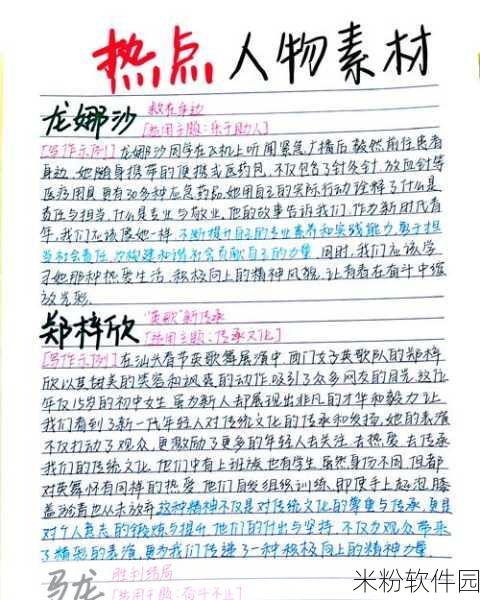 热点人物素材
龙娜沙 救在身边
[适用主题:乐于助人]
[写作示例]龙娜沙同学在飞机上听闻紧急广播后毅然前往患者
身边,她随身携带的便携式医药包,不仅包含了针灸针、放血针等
医疗用具,更有30多种应急药品,她用自己的实际行动诠释了什么是
责任与担当,什么是专业与敬业。他的故事告诉我们,作为新时代青
年,我们应该像她一样,不断提升自己的专业素养和实践能力,勇于担
当社会责任,为构建和谐社会贡献自己的力量,同时,我们应该学
习她那种热爱生活、积极向上的精神风貌,让青春在奋斗中绽
放光彩。
郑梓欣 "英歌"新传承
[适用主题:传承文化]
[写作示例]在汕头春节英歌舞展演中,西门女子英歌队的郑梓
欣以其甜美的笑容和飒爽的动作,吸引了众多网友的目光,这位
年仅15岁的初中女生,虽为新人却展现出非凡的才华和毅力,让
我们看到了新一代年轻人对传统文化的传承和发扬,她的表演
不仅打动了观众,更激励了更多的年轻人去关注、去热爱、去传承
我们的传统文化,他们中有上班族也有学生,虽然身份不同,但都
对英舞怀有同样的热爱,他们自发组织训练,即使手上起泡,膝
盖淤青也从未放弃这种精神不仅是对传统文化的尊重与传承,更是
对个人意志的锻炼与提升,他们的付出与坚持,不仅为观众带来
了精彩的表演,更为我们传递了一种积极向上的精神力量
马龙 胜利结局
[适用主题:奋斗不止]
米粉软件园